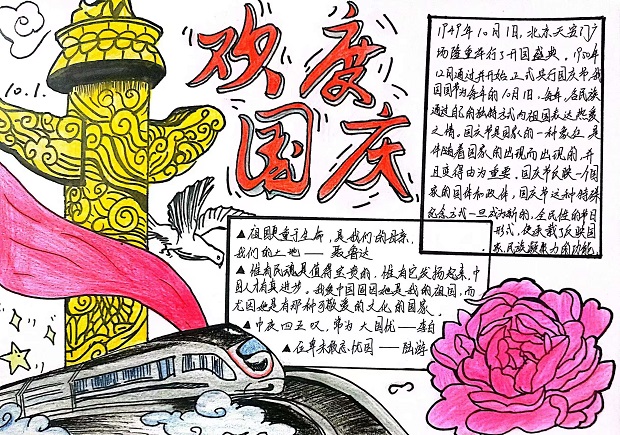 欢度
国庆
10.1.
1949年10月1日,北京天安门广
场隆重举行了开国盛典。1950年
12月通过并开始正式实行国庆节,我
国国节为每年的10月1日,每年,各民族
通过自己的独特方式向祖国表达热爱
之情。国庆节是国家的一种象征,是
伴随着国家的出现而出现的,并
且变得由为重要。国庆节反映一个国
家的国体和政体,国庆节这种特殊
纪念方式一旦成为新的、全民性的节日
形式,便承载了反映国
家、民族凝聚力的功能。
▲祖国更重于生命,是我们的母亲,
我们的土地——聂鲁达
▲惟有民魂是值得宝贵的,惟有它发扬起来,中
国人才有真进步。我爱中国固因她是我的祖国,而
尤因她是有那种可敬爱的文化的国家。
▲中夜四五叹,常为大国忧——李白
▲位卑未敢忘忧国——陆游